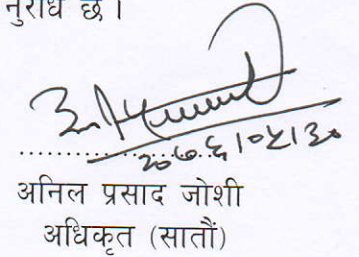 नुरोध छ।
२०७६।०५।३०
अनिल प्रसाद जोशी
अधिकृत (सातौं)